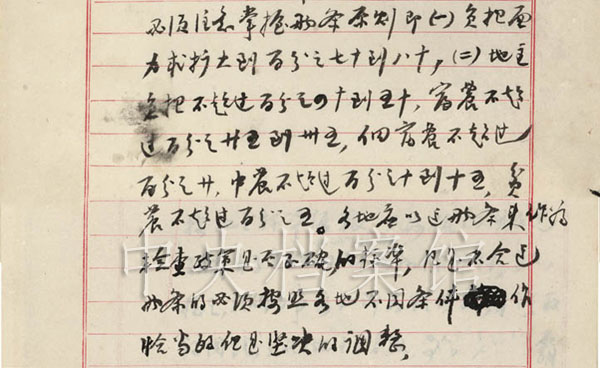 必须注意掌握两条原则即(一)负担面
力求扩大到百分之七十到八十，(二)地主
负担不超过百分之四十到五十，富农不超
过百分之廿五到卅五，佃富农不超过
百分之廿，中农不超过百分之十到十五，贫
农不超过百分之五。各地应以这两条来作为
检查政策是否正确的标准，凡是不合这
两条的必须按照各地不同条件作
恰当的但是坚决的调整，
中央档案馆